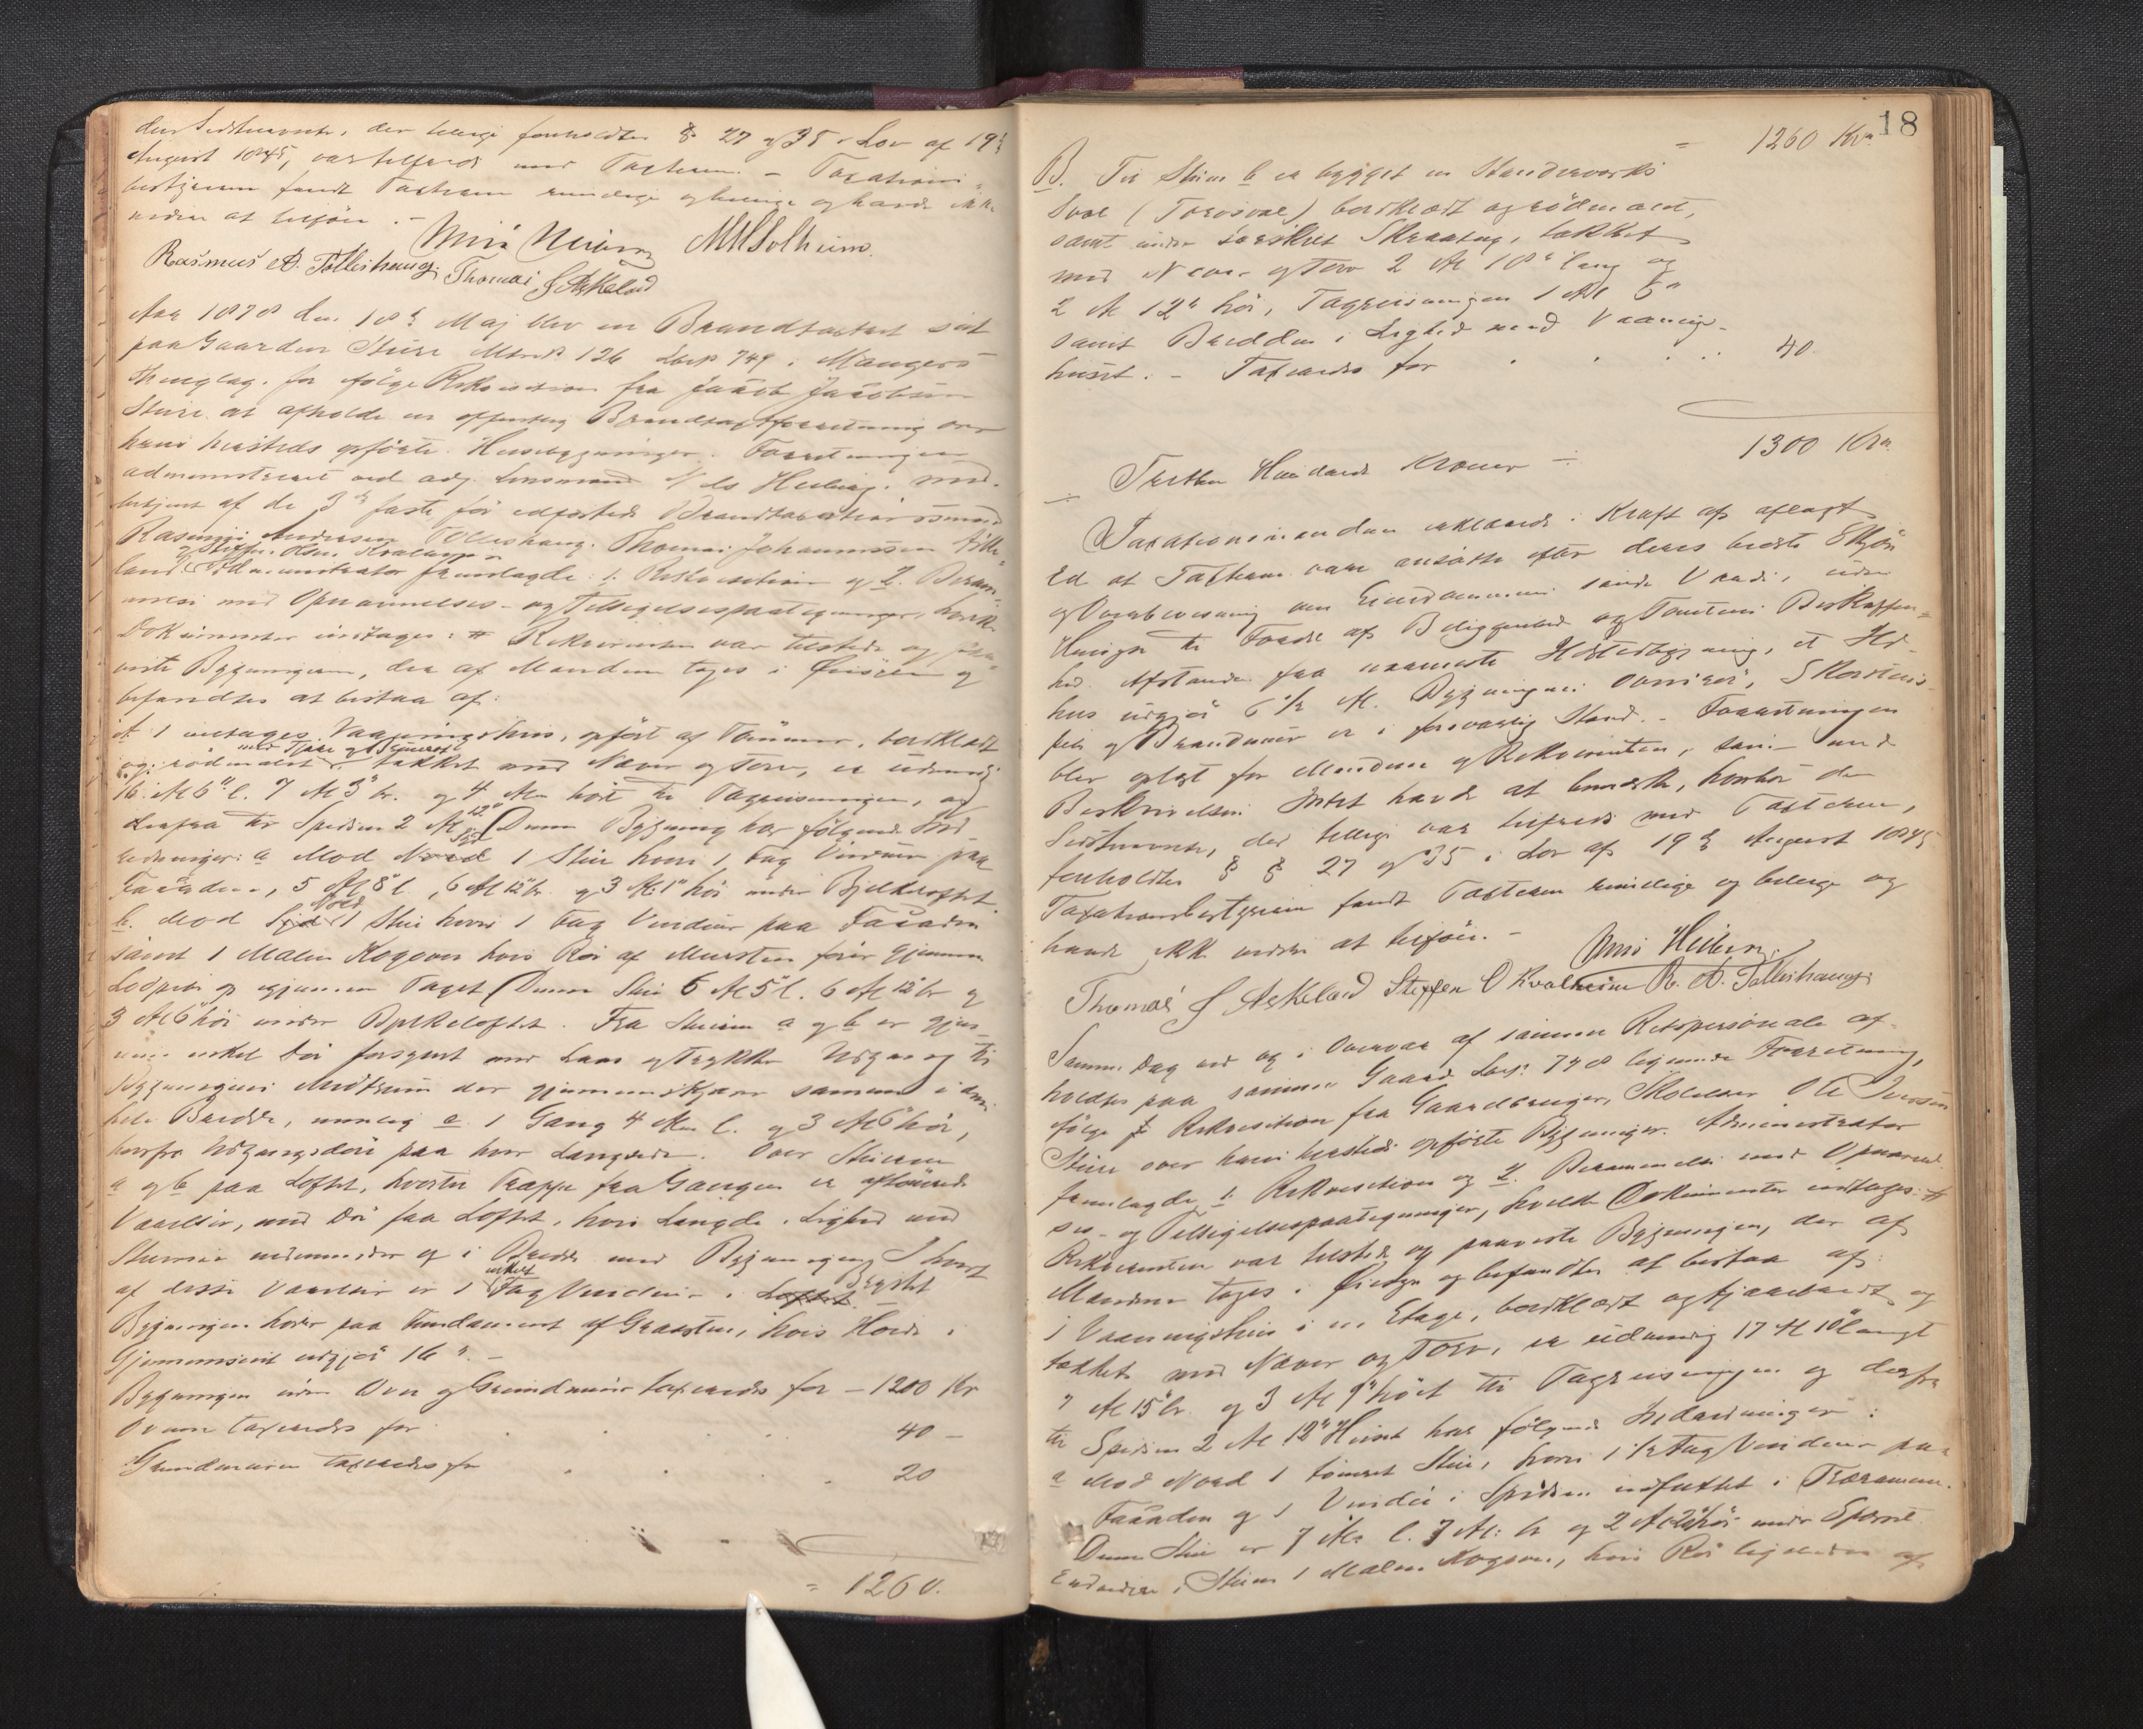 den Sidstnævnte, der tillige foreholdtes § 27 og 35 i Lov af 19de
August 1845, var tilfreds med Taxterne. – Taxations-
bestyreren fandt Taxterne rimelige og billige og havde ikke
videre at tilføie. –
Heiberg MMSolheim.
Rasmus A. Tolleshaug. Thomas J Askeland
Aar 1878 den 18de Maj blev en Brandtaxtret sat
paa Gaarden Sture Matrk 126 Løbn 749 i Mangers
Thinglag for ifølge Rekvisition fra Jacob Jacobsen
Sture at afholde en offentlig Brandtaxtforretning over
hans hersteds opførte Husebygninger. Forretningen
administreret ved adj. Lensmand Nils Heiberg. med-
betjent af de 3de faste før edfæstede Brandtaxationsmænd
Rasmus Andersen Tolleshaug. Thomas Johannessen Aske-
land og Steffen Olsen Kvalheim
Administrator fremlagde: 1. Rekvisition og 2. Beram-
melse med Opnævnelses- og Tilsigelsespaategninger, hvilke
Dokumenter indtages: # Rekvirenten var tilstede og paa-
viste Bygningerne, der af Mændene toges i Øiesyn og
befandtes at bestaa af:
A 1 etages Vaaningshus, opført af Tømmer, bordklædt
og rødmalet med Tjære og, takket med Næver og Torv, er udvendig
16 Al 6" l. 7 Al 3" br. og 4 Alen høit til Tagreisningen, og
derfra til Spidsen 2 Al 12". Denne Bygning har følgende Ind-
redninger: a Mod Syd 1 Stue hvori 1 Fag Vinduer paa
Facaden, 5 Al 8" l., 6 Al 12" br. og 3 Al: 1" høi under Bjelkeloftet.
b. Mod Nord 1 Stue hvori 1 Fag Vinduer paa Facaden
samt 1 Malm Kogeovn hvis Rør af Mursten fører gjennem
Loftet op igjennem Taget. Denne Stue 6 Al 5" l. 6 Al 12" br og
3 Al 6" høi under Bjelkeloftet. Fra Stuerne a og b er gjen-
nem enkel Dør forsynet med Laas og Trykke Udgang til
Bygningens Midtrum der gjennemskjærer samme i dens
hele Bredde, nemlig c. 1 Gang 4 Alen l. og 3 Al 6" høi,
hvorfra Udgangsdøre paa hver Langside. Over Stuerne
a og b paa Loftet, hvortil Trappe fra Gangen er aftømrede
Værelser, med Dør fra Loftet, hvis Længde i Lighed med
Stuerne nedenunder og i Bredde med Bygningen. I hvert
af disse Værelser er 1 enkelt Fag Vinduer i
Bygningen hviler paa Fundament af Graasten, hvis Høide i
Gjennemsnit udgjør 16". –
Bygningen uden Ovn og Grundmur taxeredes for – 1200 Kr
Ovnen taxeredes for . . . . 40 –
Grundmuren taxeredes for . . . . 20
= 1260.
18
= 1260 Kr.
B. Til Stuen b er bygget en Standerværks
Sval (Torvsval) bordklædt og rødmalet,
samt under særskilt Skraatag, takket
med Næver og Torv 2 Al 18" lang og
2 Al 12" høi, Tagreisningen 1 Al 6"
samt Bredden i Lighed med Vaanings-
huset. – Taxeredes for . . . . 40.
1300 Kr.
÷ Tretten Hundrede Kroner ÷
Taxationsmændene erklærede i Kraft af aflagt
Ed at Taxterne vare ansatte efter deres bedste Skjøn
og Overbevisning om Eiendommens sande Værdi, uden
Hensyn til Fordel af Beliggenhed og Tomtens Beskaffen-
hed. Afstanden fra nærmeste Hosebygning, et Ild-
hus udgjør 6 1/2 Al. Bygningens Ovnsrør, Skorstens-
pibe og Brandmur er i forsvarlig Stand. – Forretningen
blev oplæst for Mændene og Rekvirenten, som mod
Beskrivelsen Intet havde at bemærke, hvorhos den
Sidstnævnte, der tillige var tilfreds med Taxterne,
foreholdtes § § 27 og 35 i Lov af 19de August 1845
Taxationsbestyreren fandt Taxterne rimelige og billige og
havde ikke videre at tilføie. –
Heiberg.
Thomas J Askeland Steffen O Kvalheim R. A. Tolleshaug.
Samme Dag ved og i Overvær af samme Retspersonale af-
holdtes paa samme Gaard Løbn: 748 lignende Forretning,
ifølge Rekvisition fra Gaardbruger, Skolelærer Ole Iversen
Sture over hans hersteds opførte Bygninger. Administrator
fremlagde 1. Rekvisition og 2. Berammelse med Opnævnel-
ses- og Tilsigelsespaategninger, hvilke Dokumenter indtages: #
Rekvirenten var tilstede og paaviste Bygningen, der af
Mændene toges i Øiesyn og befandtes at bestaa af:
1 Vaaningshus i en Etage, bordklædt og tjærebredt og
takket med Næver og Torv, er udvendig 17 Al 10" langt
7 Al 15" br. og 3 Al 9" høit til Tagreisningen og derfra
til Spidsen 2 Al 12". Huset har følgende Indredninger:
a Mod Nord 1 tømret Stue, hvori 1 1/2 Fag Vinduer paa
Facaden og 1 Vindu i Spidsen indfattet i Trærammer.
Denne Stue er 7 Alen l. 7 Al: br og 2 Al 20" høi under
Endvidere i Stuen 1 Malm Kogeovn, hvis Rør ligeledes af